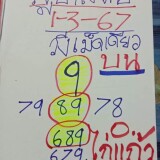 1-3-67
มีเม็ดเดียว
9 บน
79 89 78
689
679 ไก่แก้ว